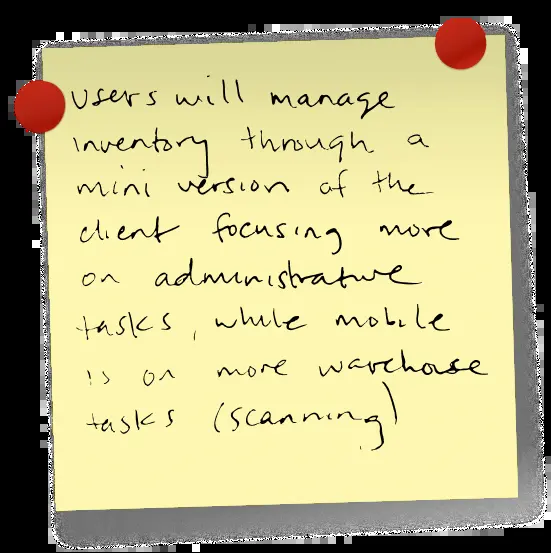 Users will manage
inventory through a
mini version of the
client focusing more
on administrative
tasks, while mobile
is on more warehouse
tasks (scanning)